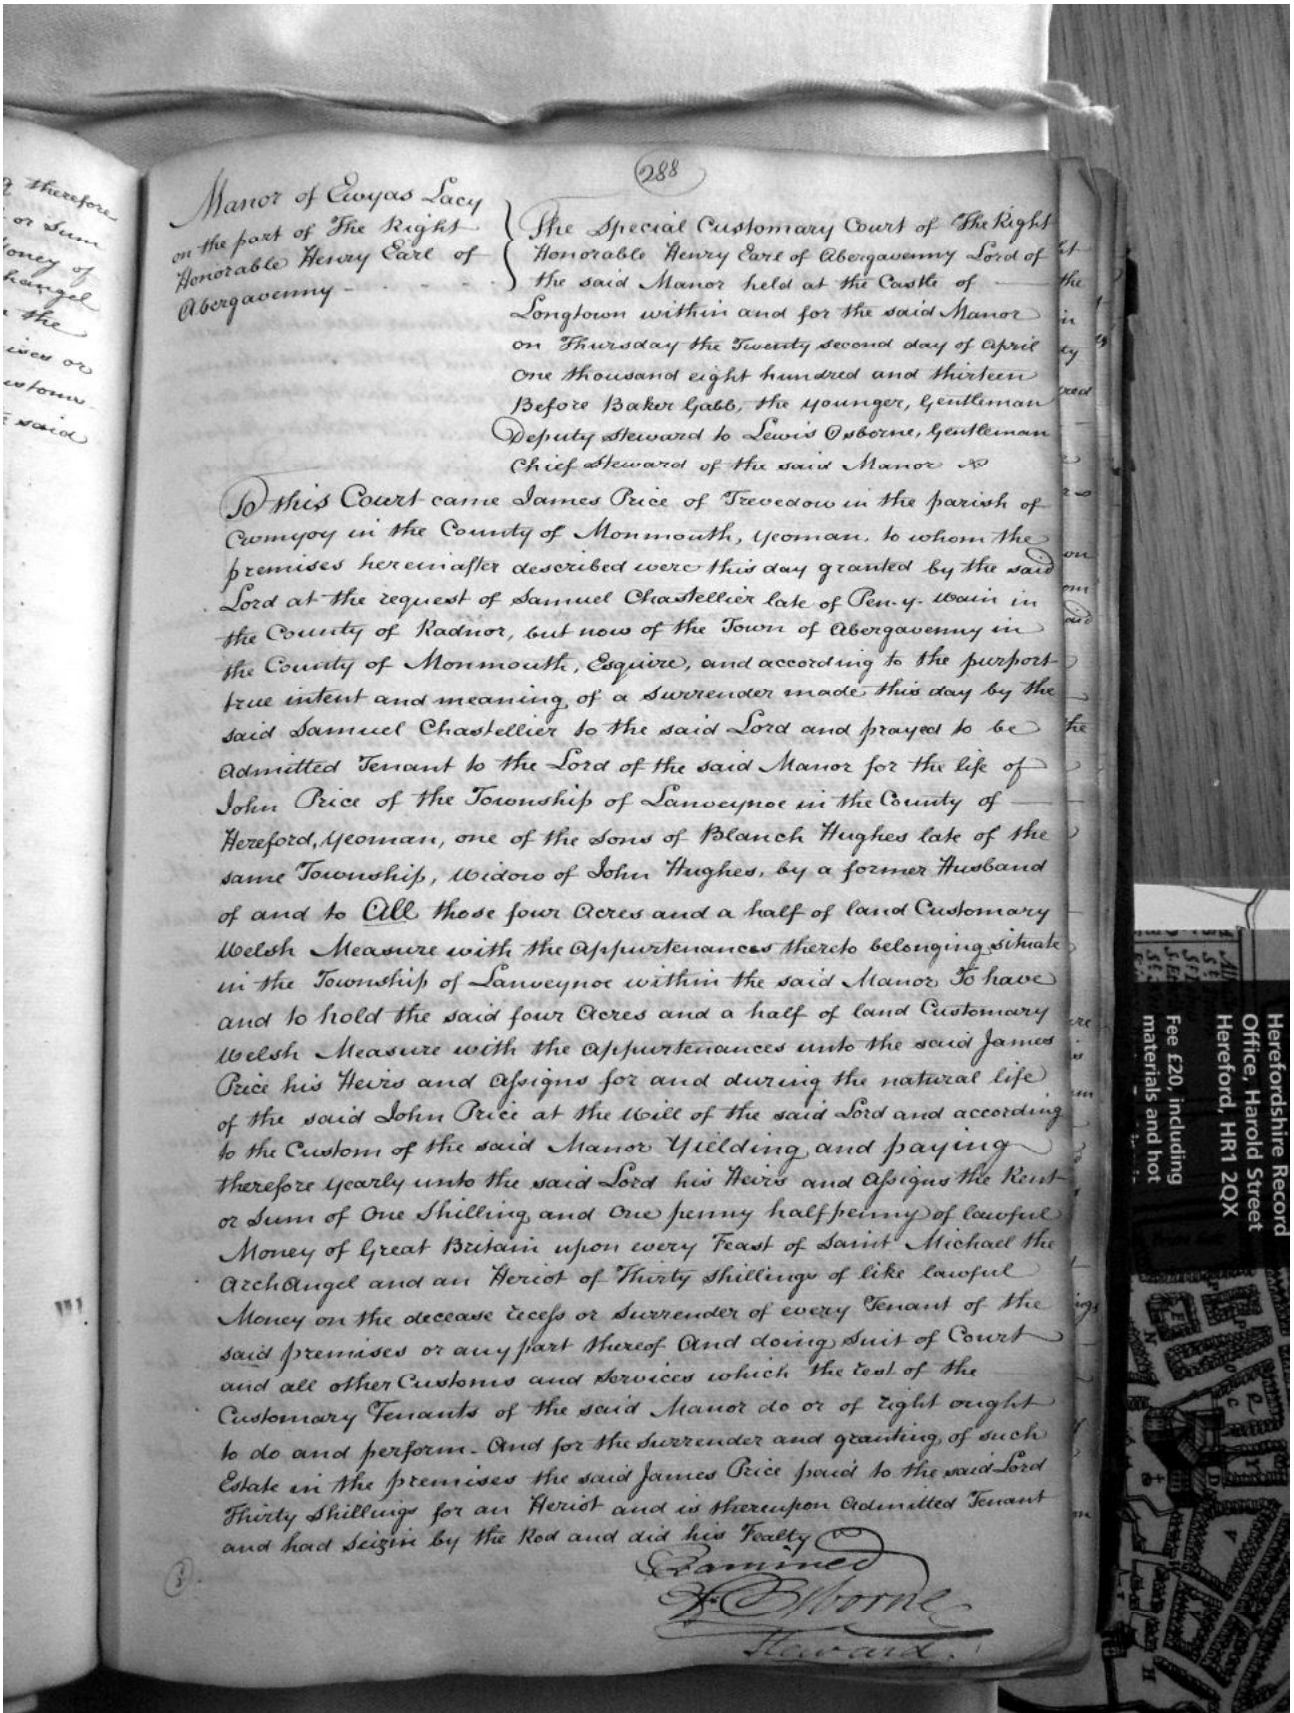 288
Manor of Ewyas Lacy
on the part of The Right
Honorable Henry Earl of
Abergavenny
The Special Customary Court of The Right
Honorable Henry Earl of Abergavenny Lord of
the said Manor held at the Castle of
Longtown within and for the said Manor
on Thursday the Twenty second day of April
One thousand eight hundred and thirteen
Before Baker Gabb, the younger, Gentleman
Deputy Steward to Lewis Osborne, Gentleman
Chief Steward of the said Manor
To this Court came James Price of Trevedow in the parish of
Cwmyoy in the County of Monmouth, yeoman, to whom the
premises hereinafter described were this day granted by the said
Lord at the request of Samuel Chastellier late of Pen-y-wain in
the County of Radnor, but now of the Town of Abergavenny in
the County of Monmouth, Esquire, and according to the purport
true intent and meaning of a Surrender made this day by the
said Samuel Chastellier to the said Lord and prayed to be
Admitted Tenant to the Lord of the said Manor for the life of
John Price of the Township of Lanveynoe in the County of
Hereford, Yeoman, one of the Sons of Blanch Hughes late of the
same Township, Widow of John Hughes, by a former Husband
of and to All those four Acres and a half of land Customary
Welsh Measure with the Appurtenances thereto belonging situate
in the Township of Lanveynoe within the said Manor To have
and to hold the said four Acres and a half of land Customary
Welsh Measure with the Appurtenances unto the said James
Price his Heirs and Assigns for and during the natural life
of the said John Price at the Will of the said Lord and according
to the Custom of the said Manor Yielding and paying
therefore yearly unto the said Lord his Heirs and Assigns the Rent
or Sum of One Shilling and One penny halfpenny of lawful
Money of Great Britain upon every Feast of Saint Michael the
ArchAngel and an Heriot of Thirty shillings of like lawful
Money on the decease recess or Surrender of every Tenant of the
said premises or any part thereof And doing Suit of Court
and all other Customs and Services which the rest of the
Customary Tenants of the said Manor do or of right ought
to do and perform. And for the Surrender and granting of such
Estate in the premises the said James Price paid to the said Lord
Thirty Shillings for an Heriot and is thereupon Admitted Tenant
and had Seizin by the Rod and did his Fealty
Examined
Osborne
Steward.
therefore
or Sum
Money of
the
ises or
said
Herefordshire Record
Office, Harold Street
Hereford, HR1 2QX
Fee £20, including
materials and hot